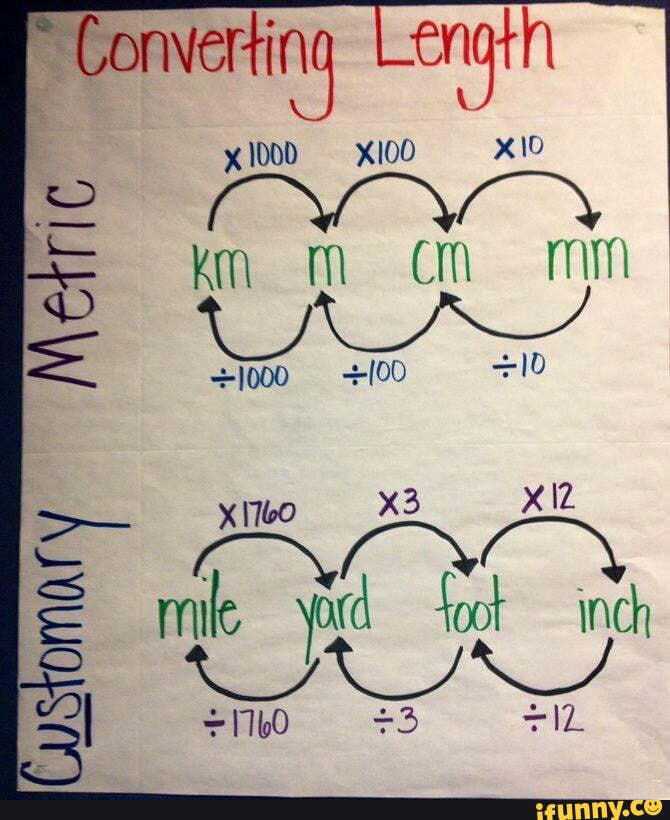 Converting Length
Metric
x 1000 x100 x 10
km m cm mm
÷1000 ÷100 ÷10
Customary
x1760 x3 x 12
mile yard foot inch
÷1760 ÷3 ÷12
ifunny.co